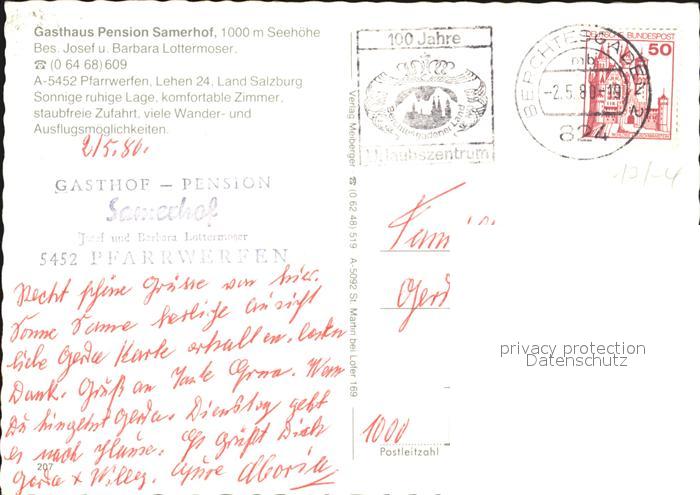 Gasthaus Pension Samerhof, 1000 m Seehöhe
Bes. Josef u. Barbara Lottermoser.
☎ (0 64 68) 609
A-5452 Pfarrwerfen, Lehen 24, Land Salzburg
Sonnige ruhige Lage, komfortable Zimmer,
staubfreie Zufahrt, viele Wander- und
Ausflugsmöglichkeiten.
2/5.80.
GASTHOF – PENSION
Samerhof
Josef und Barbara Lottermoser
5452 PFARRWERFEN
Recht schöne Grüsse von hier.
Sonne Sonne herliche Aussicht
liebe Gerda Karte erhalten.
Dank. Gruß an Tante
Du hingehst Gerda. Dienstag geht
es nach Hause. Es grüßt Dich
Gerda + Willy.
207
Verlag Meiberger ☎ (0 62 48) 519 A-5092 St. Martin bei Lofer 169
100 Jahre
Berchtesgadener Land
Urlaubszentrum
BERCHTESGADEN 2
mb
-2.5.80-19
824
DEUTSCHE BUNDESPOST
50
Fam
Gerd
1000
Postleitzahl
privacy protection
Datenschutz